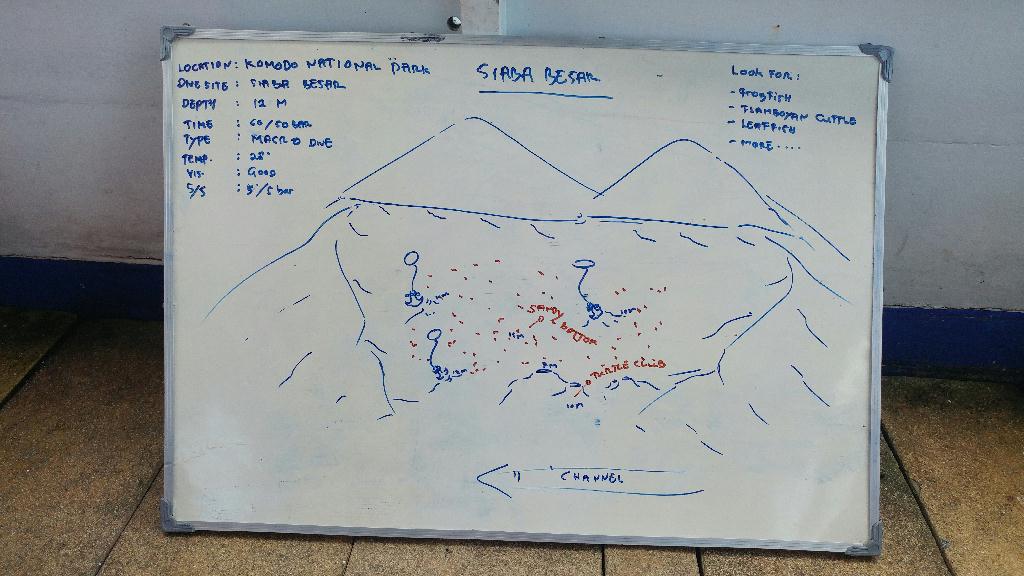 SIABA BESAR
LOCATION : KOMODO NATIONAL PARK
DIVE SITE : SIABA BESAR
DEPTH : 12 M
TIME : 60/50 BAR
TYPE : MACRO DIVE
TEMP. : 28°
VIS. : GOOD
S/S : 3'/5 bar
LOOK FOR :
- FROGFISH
- FLAMBOYAN CUTTLE
- LEAFFISH
- MORE ....
SANDY BOTTOM
TURTLE CLUB
10m
CHANNEL